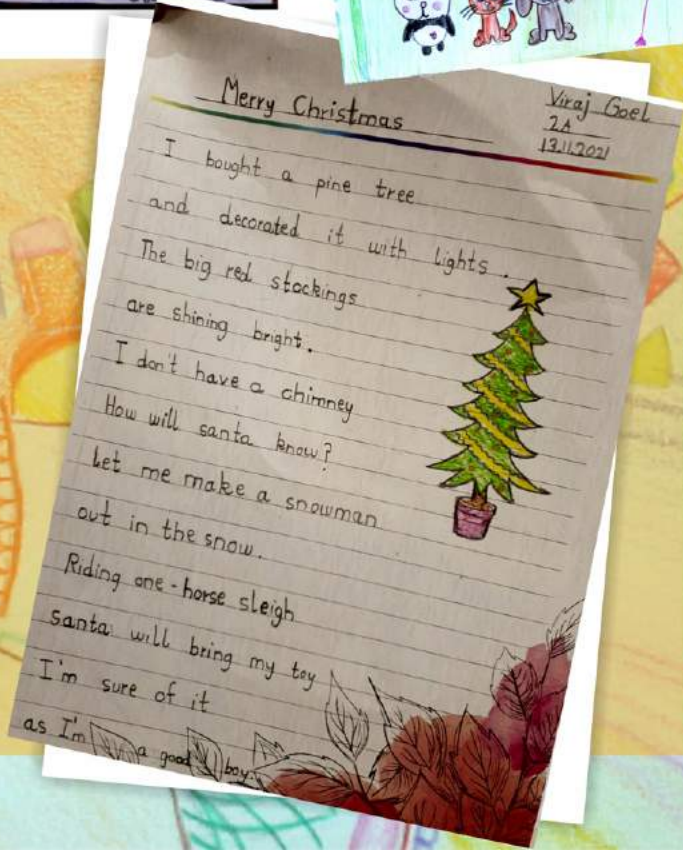 Merry Christmas
Viraj Goel
2A
13.11.2021
I bought a pine tree
and decorated it with lights.
The big red stockings
are shining bright.
I don't have a chimney
How will santa know?
Let me make a snowman
out in the snow.
Riding one-horse sleigh
santa will bring my toy
I'm sure of it
as I'm a good boy.